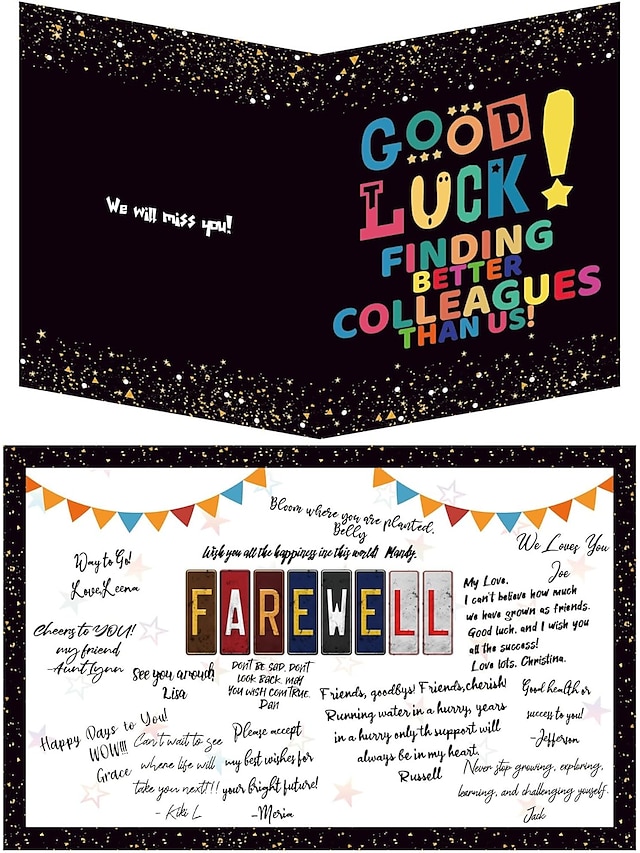 We will miss you!
GOOD
LUCK!
FINDING
BETTER
COLLEAGUES
THAN US!
Bloom where you are planted.
Belly
Wish you all the happiness inc this world! Mandy.
Way to Go!
Love,Leena
We Loves You
Joe
FAREWELL
My Love,
I can't believe how much
we have grown as friends.
Good luck, and I wish you
all the success!
Love lots, Christina.
Cheers to YOU!
my friend
Aunt Lynn
See you aroudj
Lisa
DON'T BE SAD, DON'T
LOOK BACK, MAY
YOU WISH COM TRUE.
Dan
Friends, goodbys! Friends,cherish!
Running water in a hurry, years
in a hurry only th support will
always be in my heart.
Russell
Good health or
success to you!
-Jefferson
Happy Days to You!
WOW!!!
Grace
Can't wait to see
where life will
take you next!!!
- Kiki L
Please accept
my best wishes for
your bright future!
-Meria
Never stop growing, exploring,
learning, and challenging youself.
Jack